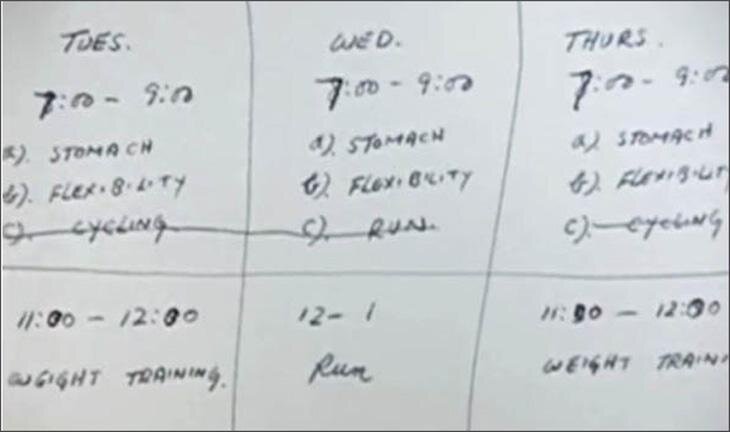 TUES.
7:00 - 9:00
a). STOMACH
b). FLEXIBILITY
c). CYCLING
11:00 - 12:00
WEIGHT TRAINING.
WED.
7:00 - 9:00
a). STOMACH
b). FLEXIBILITY
c). RUN.
12 - 1
Run
THURS.
7:00 - 9:00
a). STOMACH
b). FLEXIBILIT
c). CYCLING
11:00 - 12:00
WEIGHT TRAINI